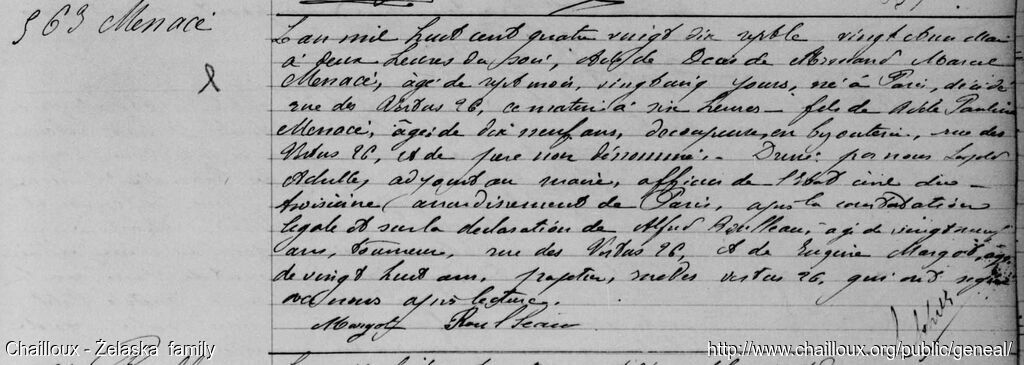 563 Menacé
L'an mil huit cent quatre vingt dix sept le vingt un Mai
à deux heures du soir, Acte de Décès de Armand Marcel
Menacé, âgé de sept mois, vingt cinq jours, né à Paris, décédé
rue des Vertus 26, ce matin à six heures fils de Adèle Pauline
Menacé, âgée de dix neuf ans, découpeuse en bijouterie, rue des
Vertus 26, et de père non dénommé. Dressé par nous
adjoint au maire, officier de l'Etat civil du
troisième arrondissement de Paris, après la constatation
légale et sur la déclaration de Alfred Roulleau, âgé de vingt neuf
ans, tourneur, rue des Vertus 26, et de Eugène Margot, âgé
de vingt huit ans, papetier, rue des vertus 26, qui ont signé
avec nous après lecture.
Margot Roulleau
Chailloux - Żelaska family
http://www.chailloux.org/public/geneal/